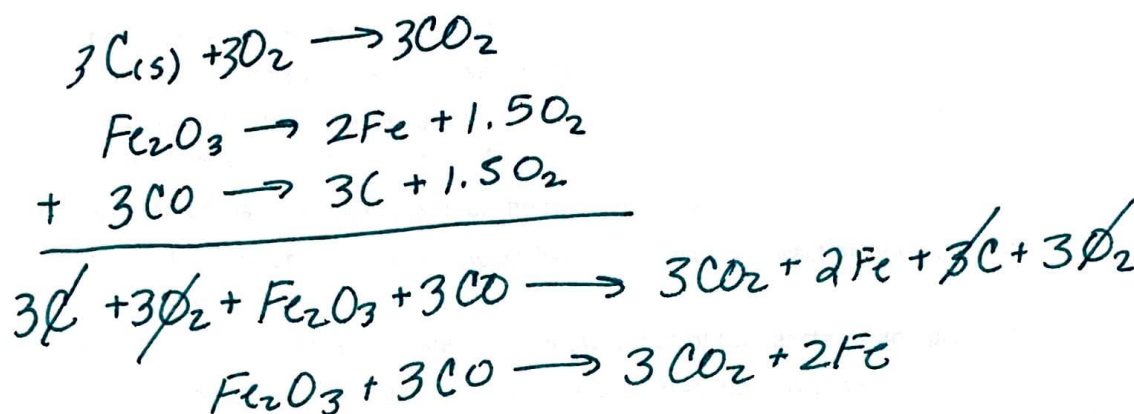 3C(s) + 3O₂ → 3CO₂
Fe₂O₃ → 2Fe + 1.5O₂
+ 3CO → 3C + 1.5O₂
3C + 3O₂ + Fe₂O₃ + 3CO → 3CO₂ + 2Fe + 3C + 3O₂
Fe₂O₃ + 3CO → 3CO₂ + 2Fe